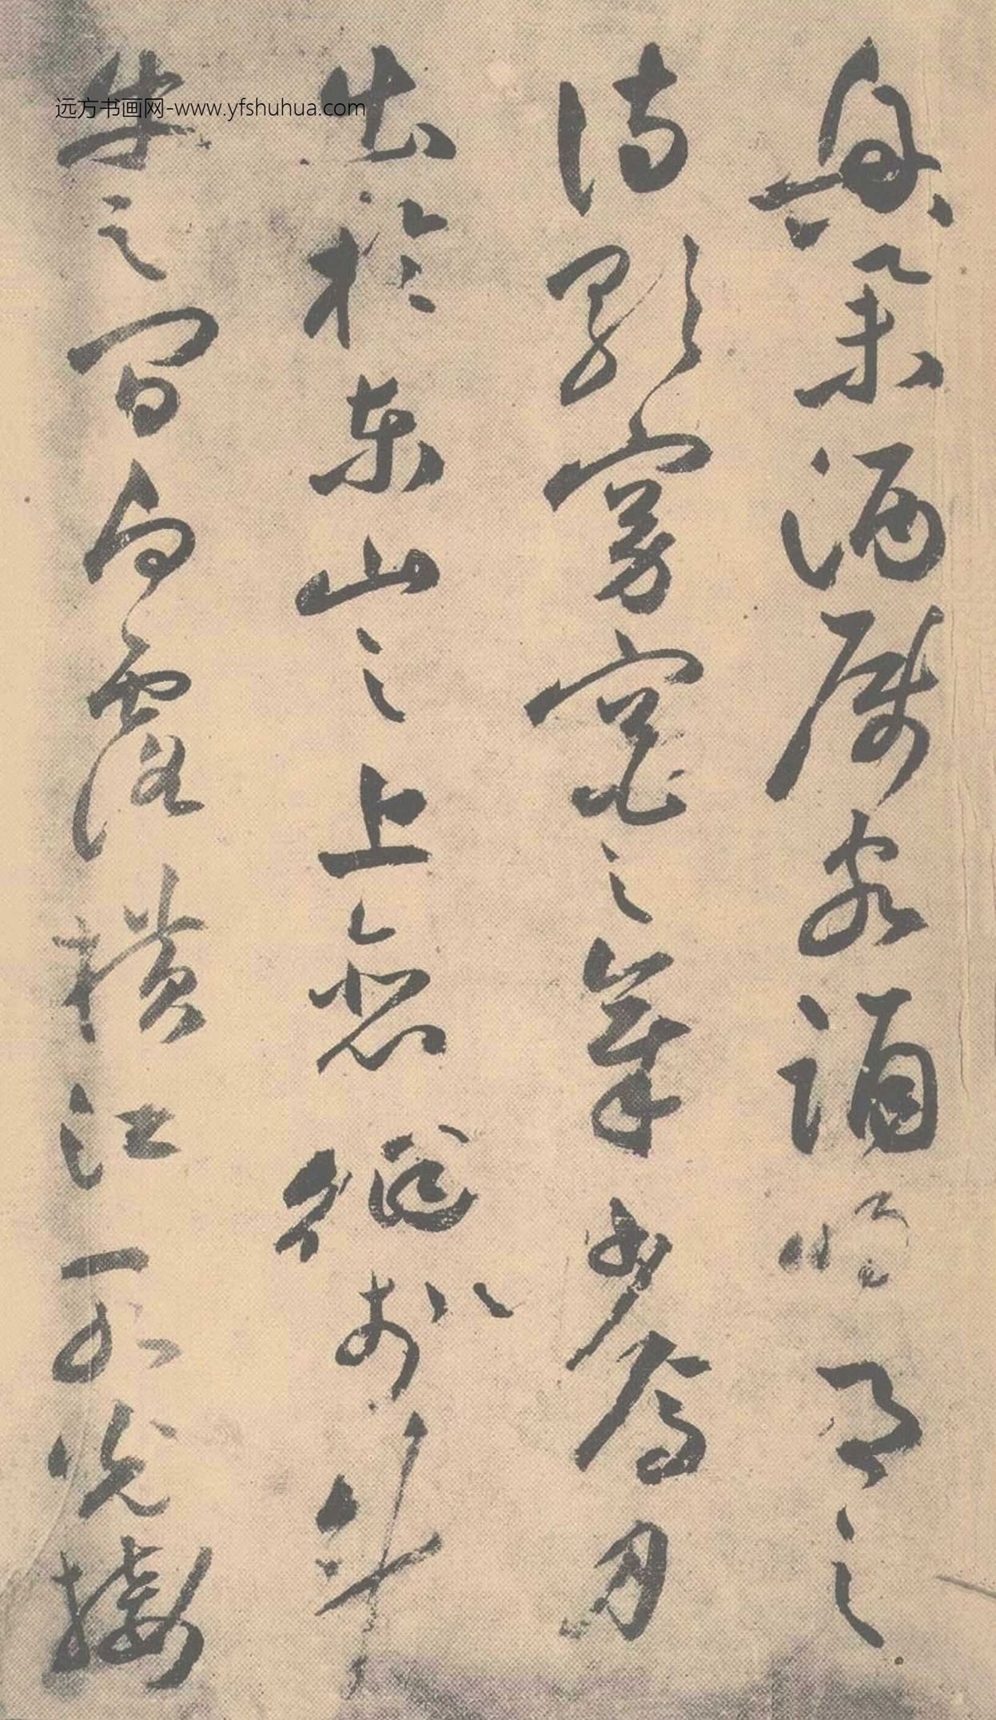 興舉酒属客誦明月之
詩歌窈窕之章少焉月
出於東山之上徘徊於斗
牛之間白露橫江水光接
远方书画网-www.yfshuhua.com